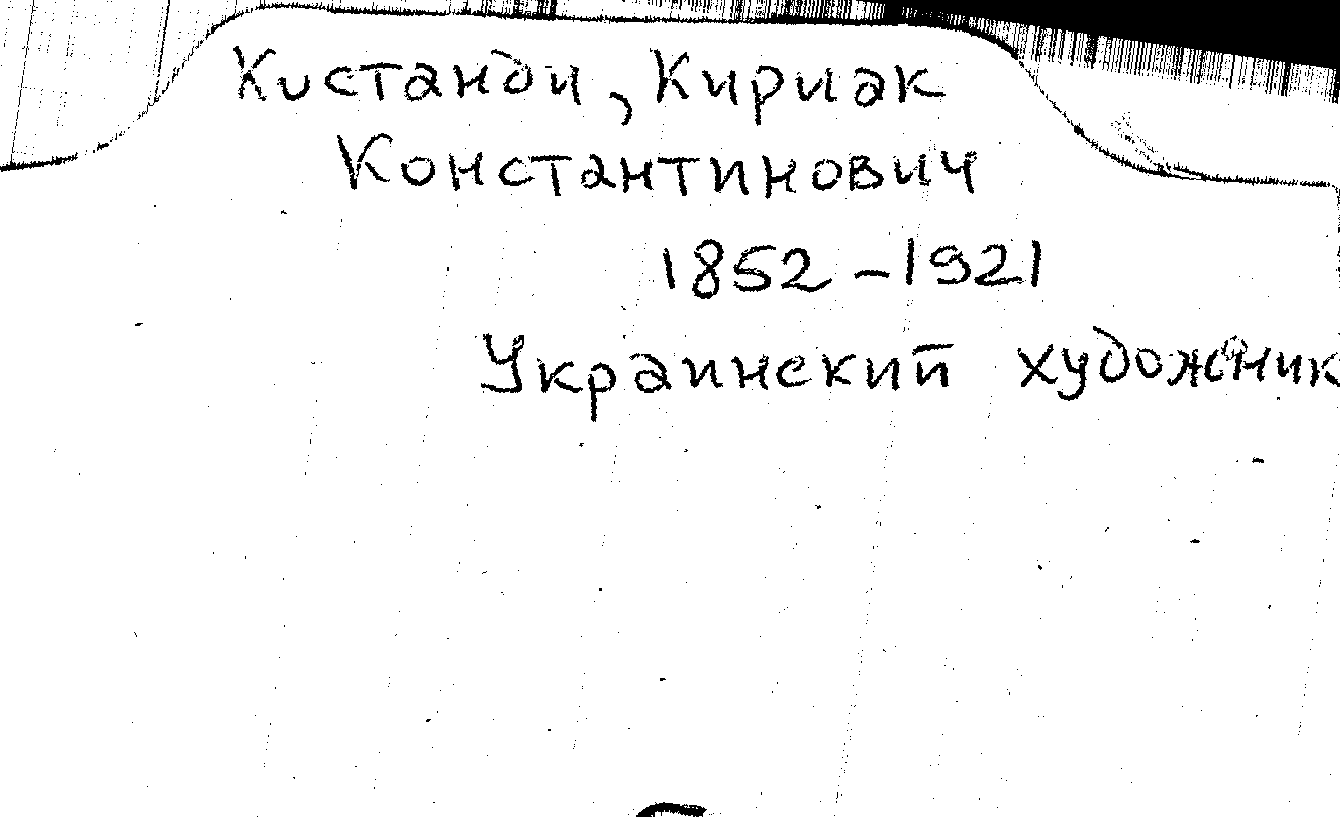 Костанди, Кириак
Константинович
1852 – 1921
Украинский художник